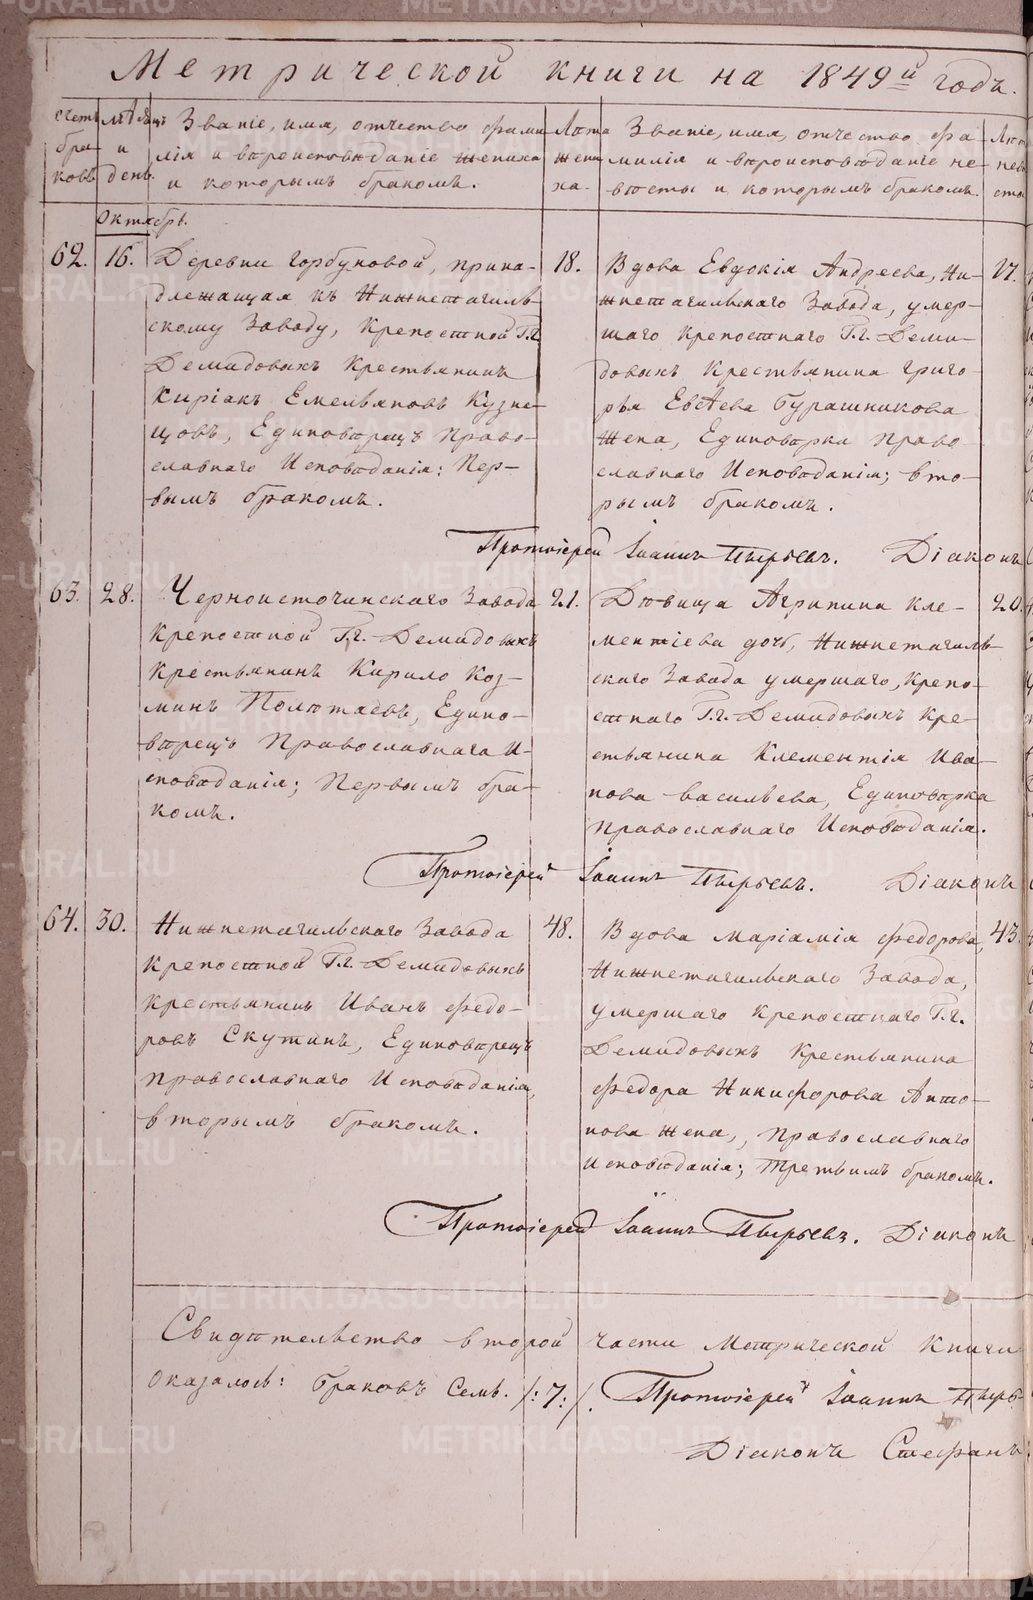 Метрической книги на 1849й годъ.
Счетъ браковъ
Мѣсяцъ и день.
Званіе, имя, отчество фами-
лія и вѣроисповѣданіе жениха
и которымъ бракомъ.
Лѣта жениха.
Званіе, имя, отчество фа-
милія и вѣроисповѣданіе не-
вѣсты и которымъ бракомъ.
Октябрь.
62. 16.
Деревни Горбуновой, прина-
длежащая къ Нижнетагиль-
скому Заводу, Крепостной Г.г.
Демидовыхъ Крестьянинъ
Киріакъ Емельяновъ Кузне-
цовъ, Единовѣрецъ Право-
славнаго Исповѣданія: Пер-
вымъ бракомъ.
18.
Вдова Евдокія Андреева, Ни-
жнетагильскаго Завода, умер-
шаго Крепостнаго Г.г. Деми-
довыхъ Крестьянина Григо-
рья Евсѣева Бурашникова
Жена, Единовѣрка Право
славнаго Исповѣданія; вто-
рымъ бракомъ.
17.
Протоіерей Іоаннъ Пырьевъ. Діаконъ
63. 28.
Черноисточинскаго Завода
Крепостной Г.г. Демидовыхъ
Крестьянинъ Кирило Коз-
минъ Полютаевъ, Едино-
вѣрецъ Православнаго И-
сповѣданія; Первымъ бра-
комъ.
21.
Дѣвица Агрипина Кле-
ментіева дочь, Нижнетагиль-
скаго Завода умершаго, Крепо-
стнаго Г.г. Демидовыхъ Кре-
стьянина Клементія Ива-
нова Васильева, Единовѣрка
Православнаго Исповѣданія.
20.
Протоіерей Іоаннъ Пырьевъ. Діаконъ
64. 30.
Нижнетагильскаго Завода
Крепостной Г.г. Демидовыхъ
Крестьянинъ Иванъ Федо-
ровъ Скутинъ, Единовѣрецъ
Православнаго Исповѣданія,
вторымъ бракомъ.
48.
Вдова Маріамія Федорова,
Нижнетагильскаго Завода,
умершаго Крепостнаго Г.г.
Демидовыхъ Крестьянина
Федора Никифорова Анто-
нова Жена, Православнаго
Исповѣданія; Третьимъ бракомъ.
43.
Протоіерей Іоаннъ Пырьевъ. Діаконъ
Свидѣтельство второй части Метрической Книги
Оказалось: Браковъ Семь. /:7:/. Протоіерей Іоаннъ Пырь
Діаконъ Стефанъ
METRIKI.GASO-URAL.RU